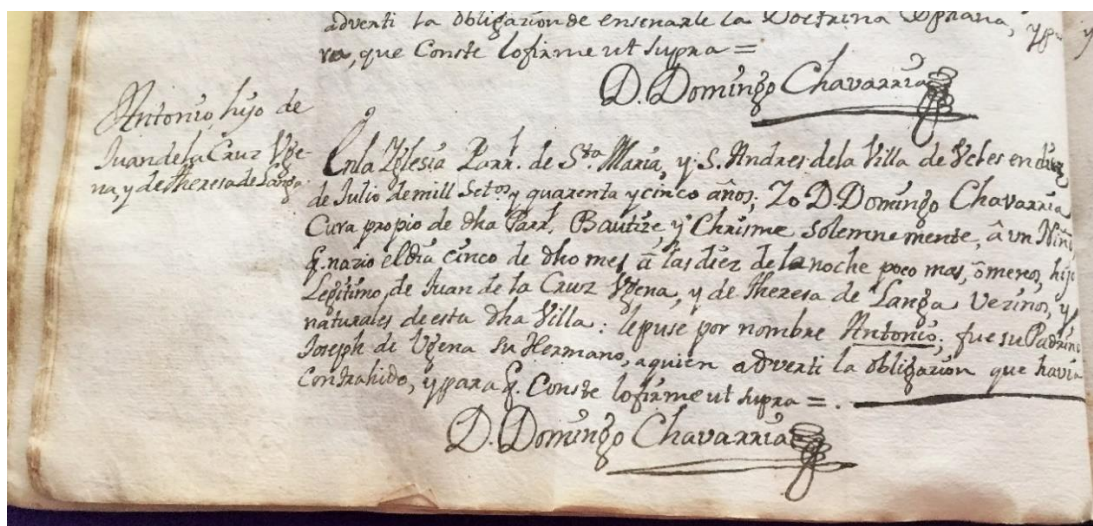 adverti la obligazion de enseñarle la Doctrina Xptiana, y pa
ra, que Conste lo firme ut supra =
D. Domingo Chavarria
Antonio, hijo de
Juan de la Cruz Vge-
na, y de Theresa de Langa.
En la Yglesia Parr.l de S.ta Maria, y S. Andres de la Villa de Vcles en
de Julio de mill Set.os y quarenta y cinco años; Yo D. Domingo Chavarria
Cura propio de dha Parr.l Bautize y Chrisme solemnemente, â vn Niño
q. nazio el dia cinco de dho mes, â las diez de la noche poco mas, ô menos, hijo
Legitimo, de Juan de la Cruz Vgena, y de Theresa de Langa Vezinos, y
naturales de esta dha Villa: le puse por nombre Antonio; fue su Padrino
Joseph de Vgena su Hermano, a quien adverti la obligazion que havia
Contrahido, y para q. Conste lo firme ut supra =.
D. Domingo Chavarria